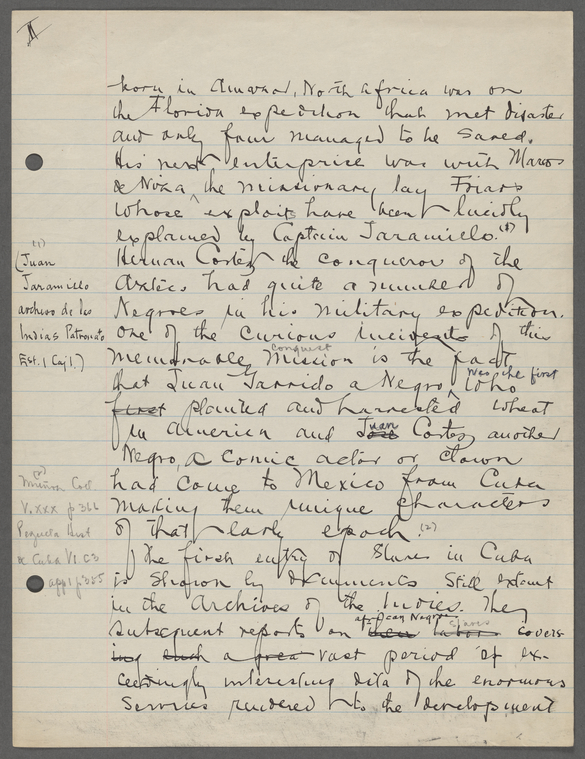 II
born in Amurad, North Africa was on
the Florida expedition that met disaster
and only four managed to be saved.
His next enterprise was with Marcos
de Niza, the missionary lay Friars
whose exploits have been lucidly
explained by Captain Jaramillo.(1)
Hernan Cortez the conqueror of the
Aztecs had quite a number of
Negroes in his military expedition.
One of the curious incidents of this
memorable mission is the fact
conquest
that Juan Garrido a Negro, who
was the first
first planted and harvested wheat
in America and Juan Cortez another
Negro, a comic actor or clown
had come to Mexico from Cuba
making them unique characters
of that early epoch.(2)
The first entry of Slaves in Cuba
is shown by documents still extant
in the Archives of the Indies. They
subsequent reports on labor covers
African Negro slaves
ing such a great vast period of ex-
ceedingly interesting data of the enormous
services rendered to the development
(1)
(Juan
Jaramillo
archivo de los
Indias Patronato
Est. 1 Caj 1.)
(2)
Muñoz Col
V. XXX p 366
Pezuela Hist
de Cuba V1. C3
app 1 p 355